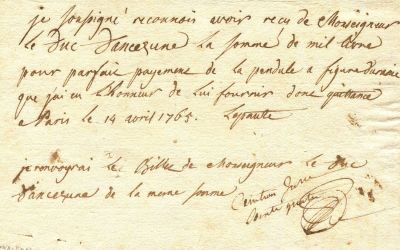 je soussigné reconnois avoir recu de Monseigneur
le Duc Dancezune la somme de mil livre
pour parfait payement de la pendule a figure
que jai eu Lhonneur de Lui fournir dont quittance
a Paris le 14 avril 1765. Lepaute
je renvoyrai Le Billet de Monseigneur le Duc
Dancezune de la meme somme